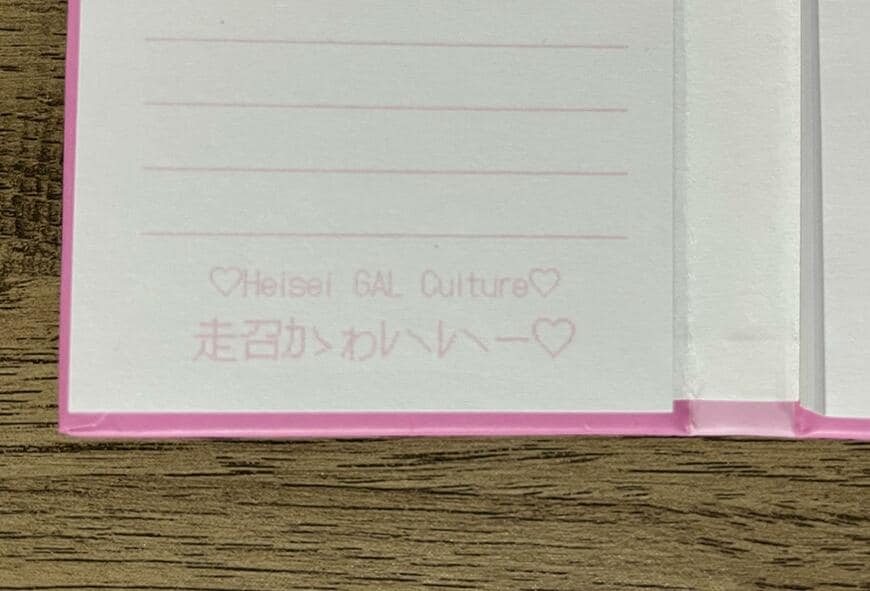 ♡Heisei GAL Culture♡
走召カゝわレヽレヽー♡